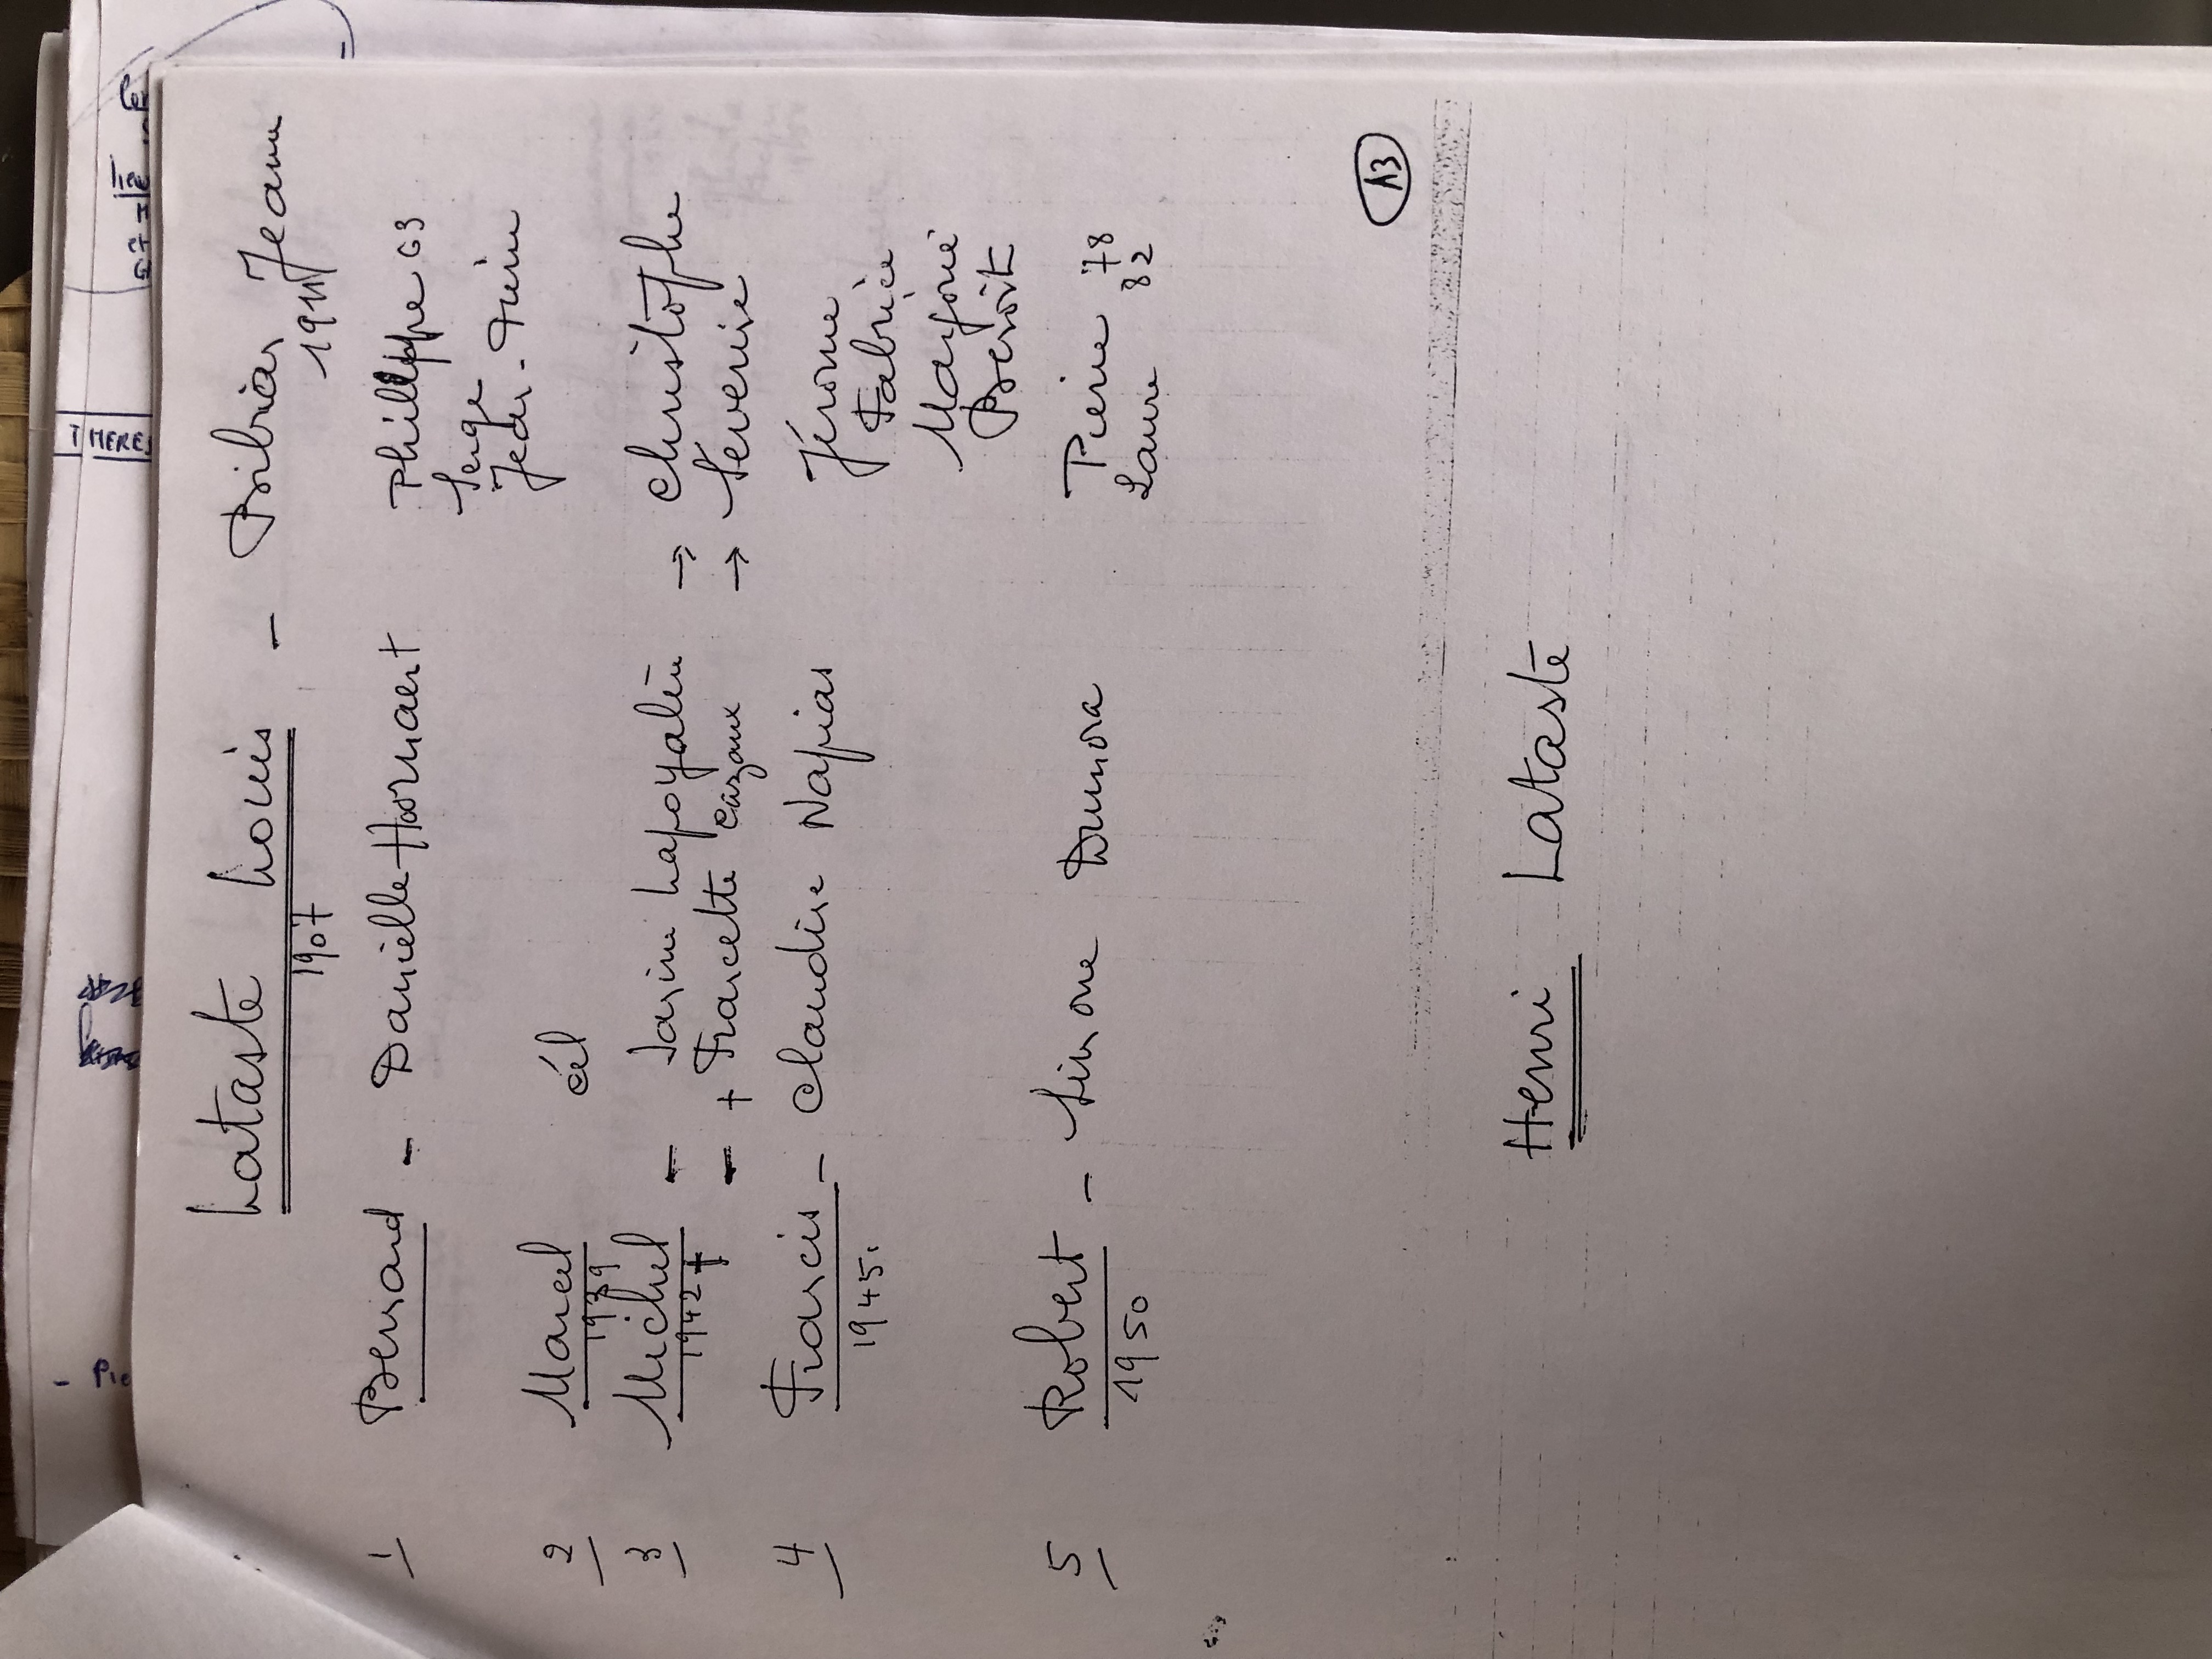 Lataste Louis - Bibian Jeanne
1907 1911
1/ Bernard - Danielle Hoornaert Philippe 63
Serge
Jean-Pierre
2/ Marcel cél
1939
3/ Michel - Janine Lapoyade → Christophe
1942 + - + Francette Cazaux → Severine
4/ Francis - Claudine Napias Jérome
1945. Fabrice
Marjorie
Benoit
5/ Robert - Simone Dumora Pierre 78
1950 Laure 82
13
Henri Lataste
THERES
- Pie